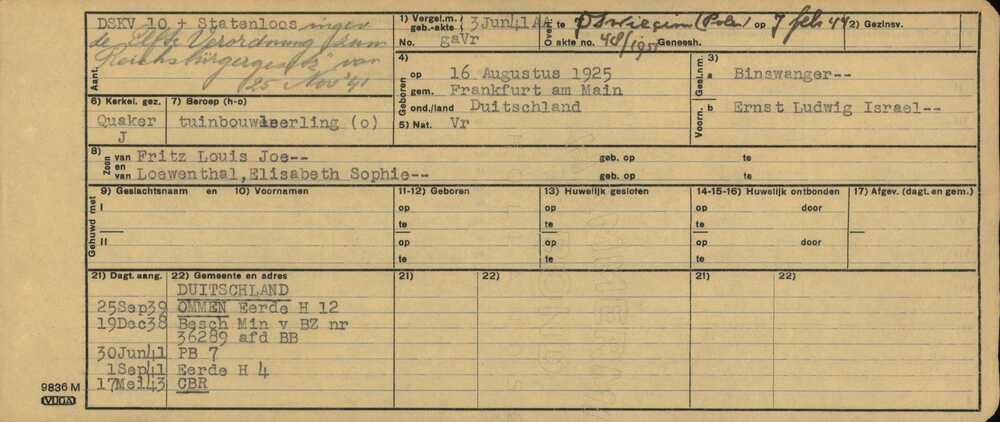 DSKV 10 + Statenloos ingev
de Elfde Verordnung zum
Reichsbürgergesetz van
25 Nov '41
Aant.
1) Vergel.m. geb.-akte ( 3Jun41AA
No. gaVr
Overl. te Oswiecim (Polen) op 7 feb 44
akte no. 48/1951 Geneesh.
2) Gezinsv.
6) Kerkel. gez.
Quaker
J
7) Beroep (h-o)
tuinbouwleerling (o)
4)
Geboren
op 16 Augustus 1925
gem. Frankfurt am Main
ond./land Duitschland
5) Nat. Vr
3)
Gesl.nm.
a Binswanger--
Voorn.
b Ernst Ludwig Israel--
8)
Zoon van Fritz Louis Joe-- geb. op te
en
van Loewenthal,Elisabeth Sophie-- geb. op te
Gehuwd met
9) Geslachtsnaam en 10) Voornamen
11-12) Geboren
13) Huwelijk gesloten
14-15-16) Huwelijk ontbonden
17) Afgev. (dagt. en gem.)
I op op op door
te te te
II op op op door
te te te
21) Dagt. aang. 22) Gemeente en adres 21) 22) 21) 22)
DUITSCHLAND
25Sep39 OMMEN Eerde H 12
19Dec38 Besch Min v BZ nr
36289 afd BB
30Jun41 PB 7
1Sep41 Eerde H 4
17Mei43 CBR
9836 M
VUGA